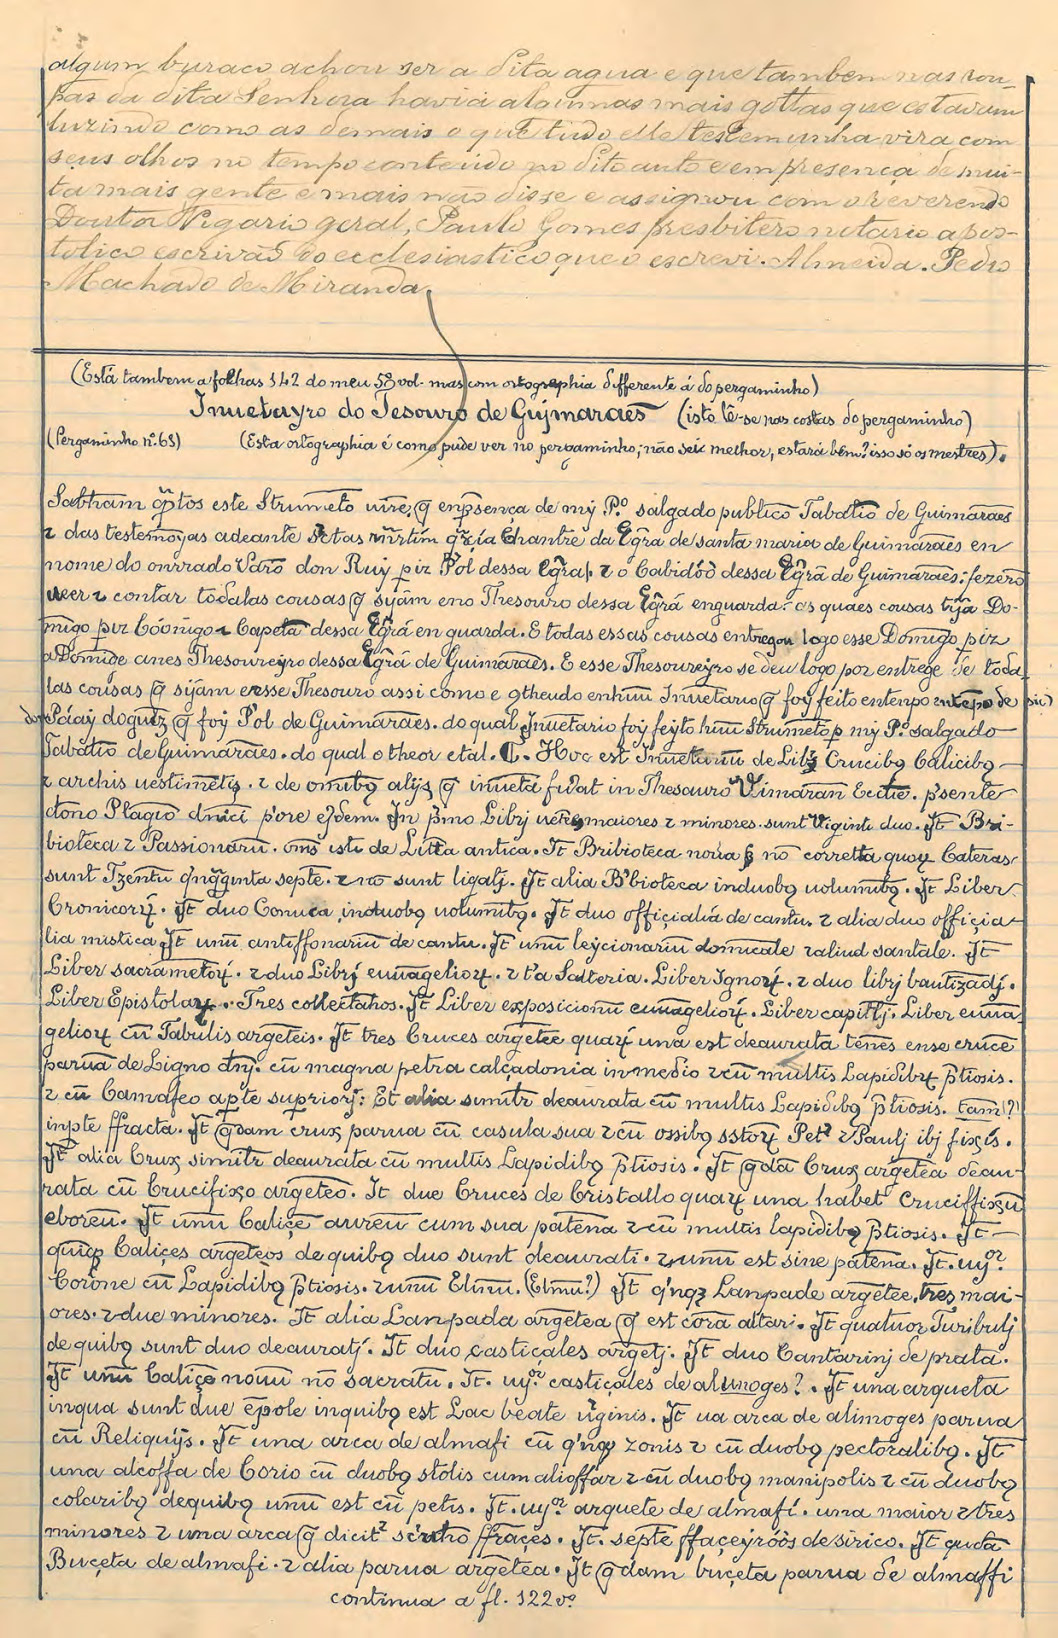 algum buraco achou ser a dita agua e que tambem nas rou-
pas da dita Senhora havia algumas mais gottas que estavam
luzindo como as demais o que tudo elle testemunha vira com
seus olhos no tempo conteudo no dito auto e em presença de mui-
ta mais gente e mais não disse e assignou com o reverendo
Doutor Vigario geral, Paulo Gomes presbitero notario apos-
tolico escrivão do ecclesiastico que o escrevi. Almeida. Pedro
Machado de Miranda.
(Está tambem a folhas 142 do meu 5º vol. mas com ortographia differente á do pergaminho)
Inuetayro do Tesouro de Gujmaraẽs (isto lê-se nas costas do pergaminho)
(Pergaminho nº 63) (Esta ortographia é como pude ver no pergaminho; não sei melhor, estará bem? isso só os mestres).
Sabham q̃tos este Strumẽto uirẽ, q̃ enp̃sença de mỹ Pº salgado publico Tabatiõ de Guimarães
τ das testemoyas adeante sctas mr̃tim gr̃çia Chantre da Egr̃a de santa maria de Guimarães en
nome do onrrado Varõ don Ruỹ pirz P'ol dessa Egr̃a. τ o Cabidóó dessa Egr̃a de Guimarães: fezerõ
ueer τ contar todalas cousas q̃ sijam eno Thesouro dessa Egr̃a enguarda. as quaes cousas tijã Do-
mĩgo pirz Cóonigo τ Capelã dessa Egr̃a en guarda. E todas essas cousas entregou logo esse Domĩgo pirz
a Domĩde anes Thesoureyro dessa Egr̃a de Guimarães. E esse Thesoureyro se deu logo por entrege de toda
las cousas q̃ sijam ensse Thesouro assi como e 9theudo enhuũ Inuetario q̃ foy feito entenpo entẽpo de (sic)
don Páay doguz q̃ foy P'ol de Guimarães. do qual Inuetario foy feyto huũ Strumẽto p mỹ Pº salgado
Tabatiõ de Guimarães. do qual o theor e tal. ¶. Hoc est Inuetariũ de Librz Crucibꝫ Calicibꝫ
τ archis uestimẽtis. τ de omĩbꝫ alijs q̃ inuẽta fuẽat in Thesauro Vimarañ Ecctie. p̃sente
dõno Plagio dñici p'ore ejdem. In p̃mo Librj uetes maiores τ minores. sunt Viginti duo. Jt Bri-
bioteca τ Passionariũ. oms̃ isti de Litt̃a antica. Jt Bribioteca noua τ nõ corretta quoꝝ Cateras
sunt Tzentũ q'nq̃ginta septẽ. τ nõ sunt ligatj. Jt alia B'bioteca induobꝫ uolumĩbꝫ. Jt Liber
Cronicorꝝ. Jt duo Conuca induobꝫ uolumĩbꝫ. Jt duo offiçialia de cantu. τ alia duo offiçia-
lia mistica Jt unũ antiffonariũ de cantu. Jt unũ leycionariũ domĩcale τ aliud santale. Jt
Liber sacramẽtoꝝ. τ duo Librj euuãgelioꝝ. τ t'a Salteria. Liber Ignoꝝ. τ duo librj bautizãdj.
Liber Epistolaꝝ. Tres collectahos. Jt Liber exposicionũ euuãgelioꝝ. Liber capitlj. Liber euuã-
gelioꝝ cũ Tabulis argẽteis. Jt tres Cruces argẽtee quaꝝ una est deaurata tenẽs ense crucẽ
paruã de Ligno dñj. cũ magna petra calçadonia in medio τ cũ multis Lapidibꝫ p̃tiosis.
τ cũ Camafeo ap̃te superiorj: Et alia simitr̃ deaurata cũ multis Lapidibꝫ p̃tiosis. tam(?)
inpte ffracta. Jt q̃dam crux parua cũ casula sua τ cũ ossibꝫ sstoꝝ Petʳ τ Paulj ibj fixis.
Jt alia Crux simitr̃ deaurata cũ multis Lapidibꝫ p̃tiosis. Jt q̃dã Crux argẽtea deau-
rata cũ Crucifixo argẽteo. Jt due Cruces de Cristallo quaꝝ una habet Cruciffixũ
eboreũ. Jt unũ Caliçẽ aureũ cum sua patẽna τ cũ multis lapidibꝫ p̃tiosis. Jt
quiqꝫ Caliçes argẽteos de quibꝫ duo sunt deaurati. τ unũ est sine patẽna. Jt. uyºʳ
Corõne cũ Lapidibꝫ p̃tiosis. τ unũ Elmũ. (Elmũ?) Jt q'nqꝫ Lanpade argẽtee, tres mai-
ores. τ due minores. Jt alia Lanpada argẽtea q̃ est cora altari. Jt quatuor Turibulj
de quibꝫ sunt duo deauratj. Jt duo casticales argẽtj. Jt duo Cantarinj de prata.
Jt unũ Caliçe nouũ nõ sacratũ. Jt. uyºʳ castiçales de alunoges?. Jt una arqueta
inqua sunt due ẽpole inquibꝫ est Lac beate ũginis. Jt ua arca de alimoges parua
cũ Reliquijs. Jt una arca de almafi cũ q'nqꝫ zonis τ cũ duobꝫ pectoralibꝫ. Jt
una alcoffa de Corio cũ duobꝫ stolis cum alioffar τ cũ duobꝫ manipolis τ cũ duobꝫ
colaribꝫ dequibꝫ unũ est cũ petis. Jt. uyºʳ arquete de almafi. una maior τ tres
minores τ una arca q̃ dicitʳ scinho ffrãçes. Jt. septẽ ffaçeyróos de sirico. Jt qudã
Buçeta de almafi. τ alia parua argẽtea. Jt q̃dam buçeta parua de almaffi
continua a fl. 122vº